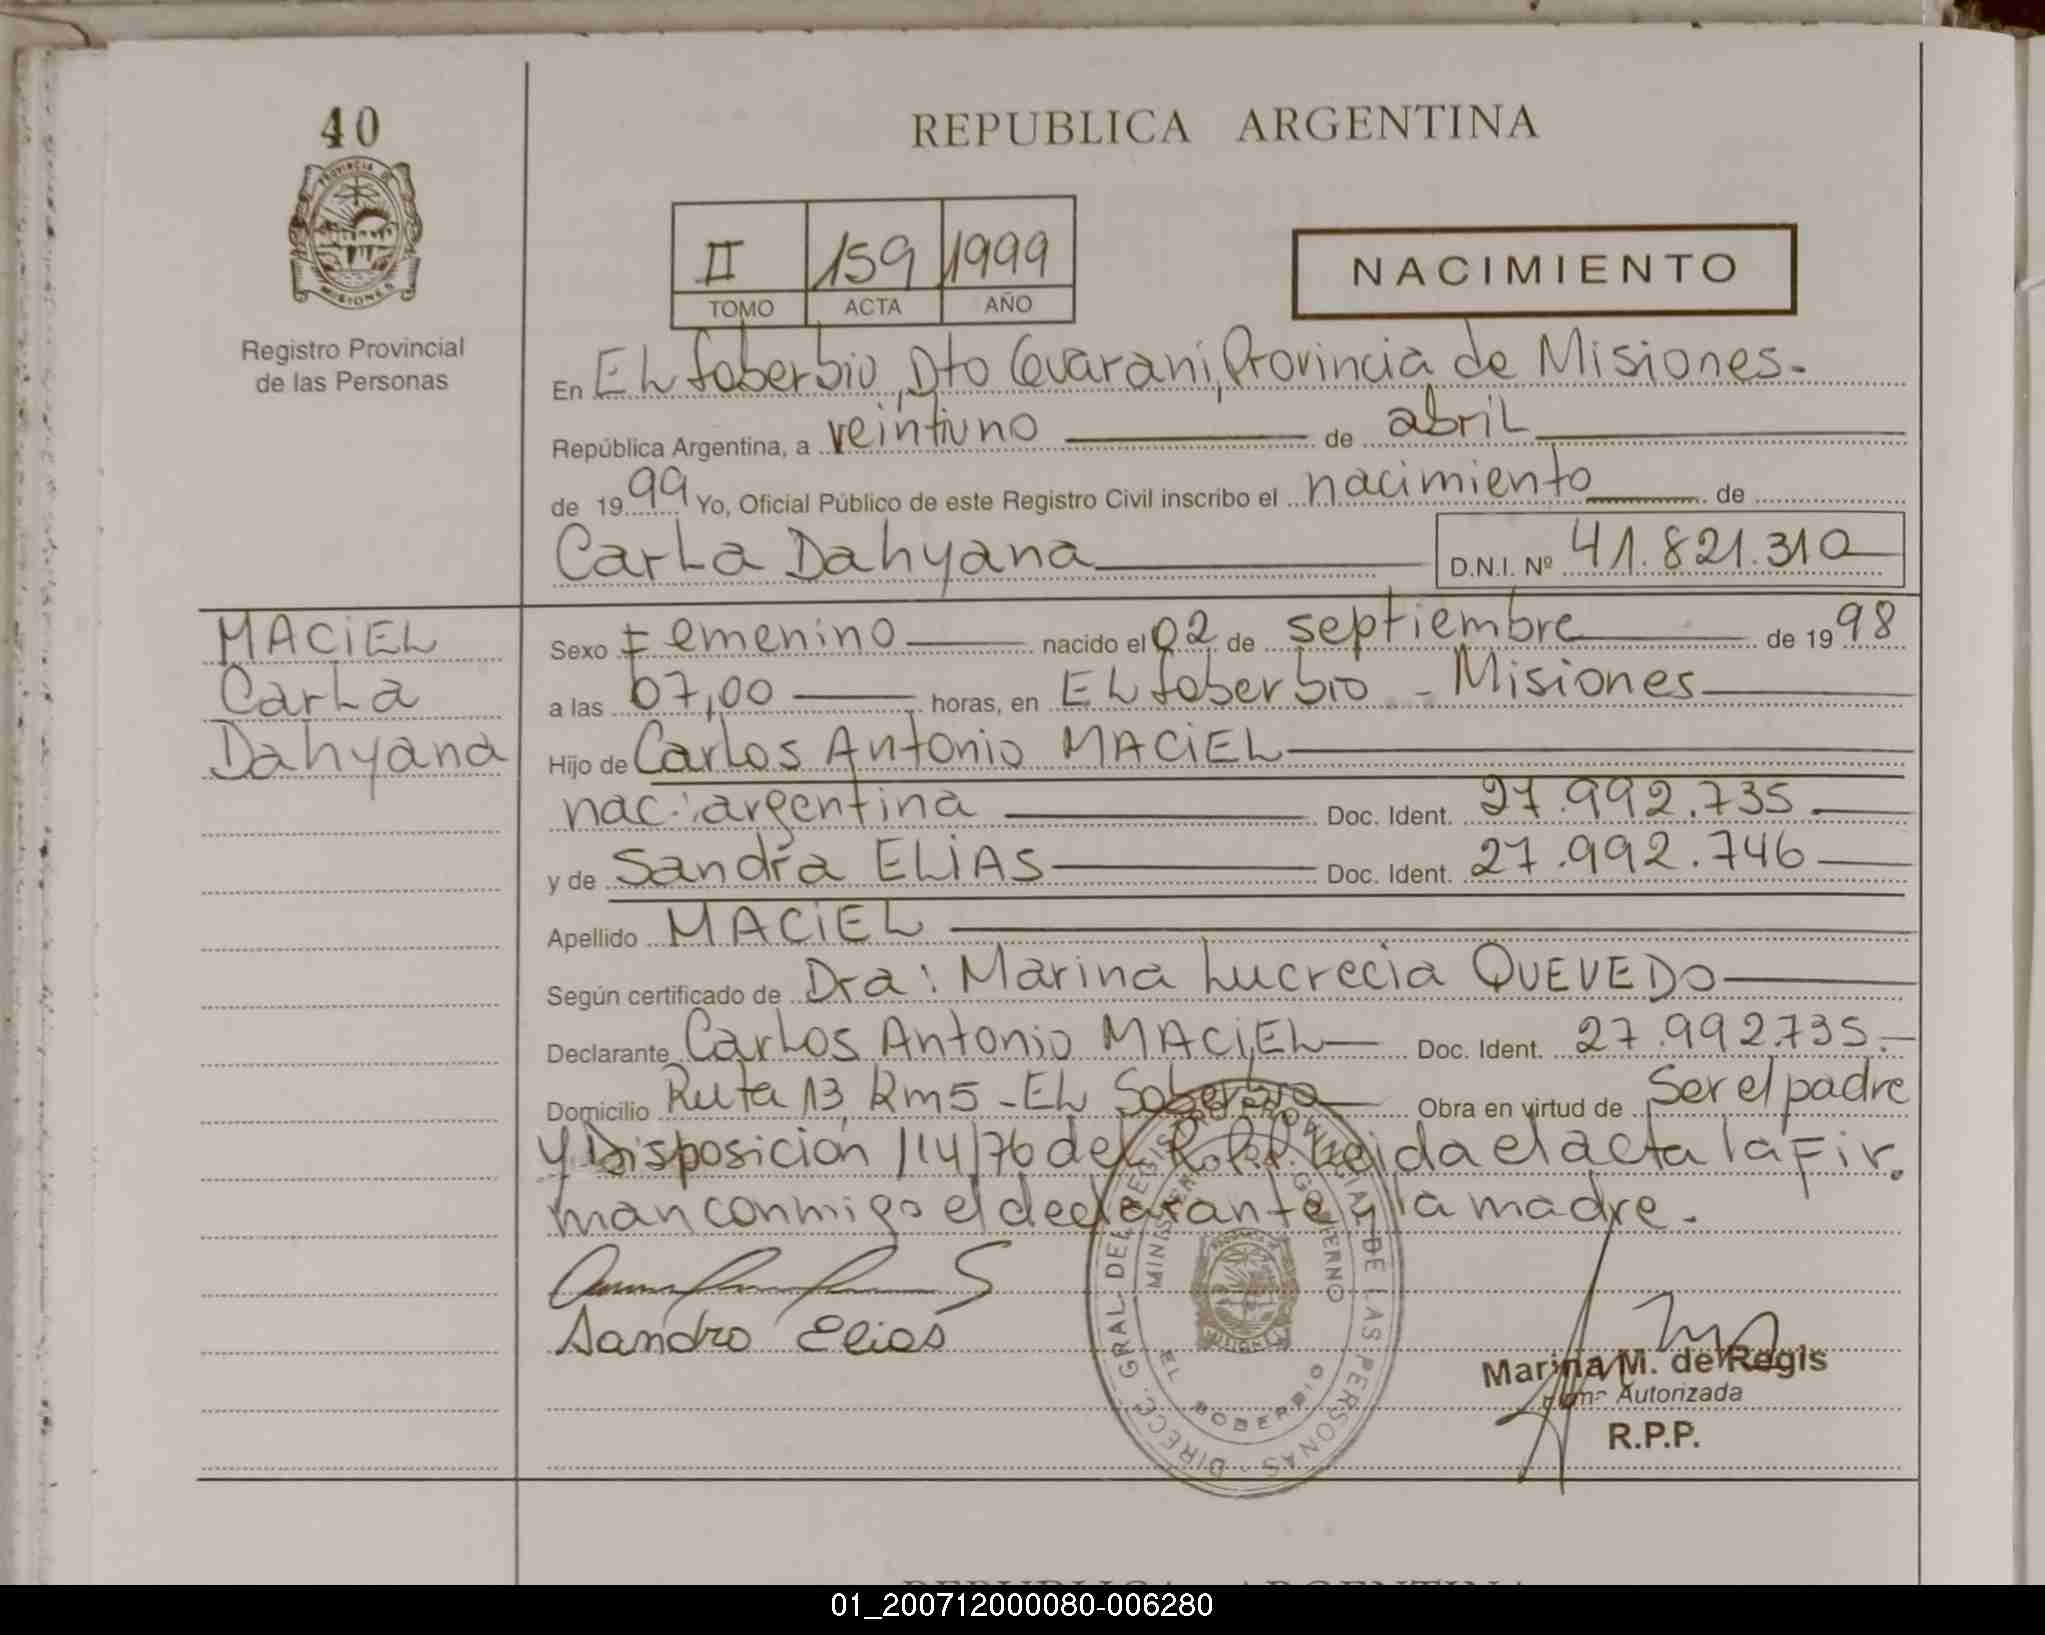 40
PROVINCIA DE
MISIONES
Registro Provincial
de las Personas
REPUBLICA ARGENTINA
II 159 1999
TOMO ACTA AÑO
NACIMIENTO
En EL Soberbio, Dto Guarani, Provincia de Misiones.
República Argentina, a veintiuno de abril
de 1999 Yo, Oficial Público de este Registro Civil inscribo el nacimiento de
CarLa Dahyana D.N.I. Nº 41.821.310
MACiEL
CarLa
Dahyana
Sexo Femenino nacido el 02 de septiembre de 1998
a las 07,00 horas, en EL Soberbio - Misiones
Hijo de Carlos Antonio MACiEL
nac: argentina Doc. Ident. 27.992.735
y de Sandra ELiAS Doc. Ident. 27.992.746
Apellido MACiEL
Según certificado de Dra: Marina Lucrecia QUEVEDO
Declarante Carlos Antonio MACiEL Doc. Ident. 27.992.735.-
Domicilio Ruta 13, km5 - EL Soberbio Obra en virtud de Ser el padre
y Disposición 114/76 del R.P.P. Leida el acta la Fir.
man conmigo el declarante y la madre.
Sandra Elias
DIRECC. GRAL. DEL REGISTRO PROVINCIAL DE LAS PERSONAS
MINISTERIO DE GOBIERNO
EL SOBERBIO
Marina M. de Regis
Firma Autorizada
R.P.P.
REPUBLICA ARGENTINA
01_200712000080-006280